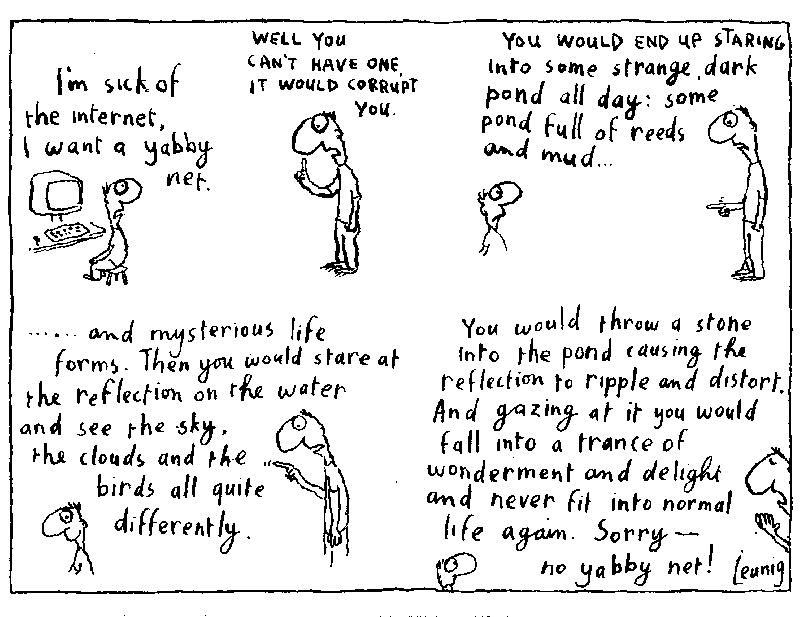 I'm sick of
the internet,
I want a yabby
net.
WELL YOU
CAN'T HAVE ONE,
IT WOULD CORRUPT
YOU.
YOU WOULD END UP STARING
into some strange, dark
pond all day: some
pond full of reeds
and mud...
...... and mysterious life
forms. Then you would stare at
the reflection on the water
and see the sky,
the clouds and the
birds all quite
differently.
You would throw a stone
into the pond causing the
reflection to ripple and distort.
And gazing at it you would
fall into a trance of
wonderment and delight
and never fit into normal
life again. Sorry —
no yabby net!
Leunig